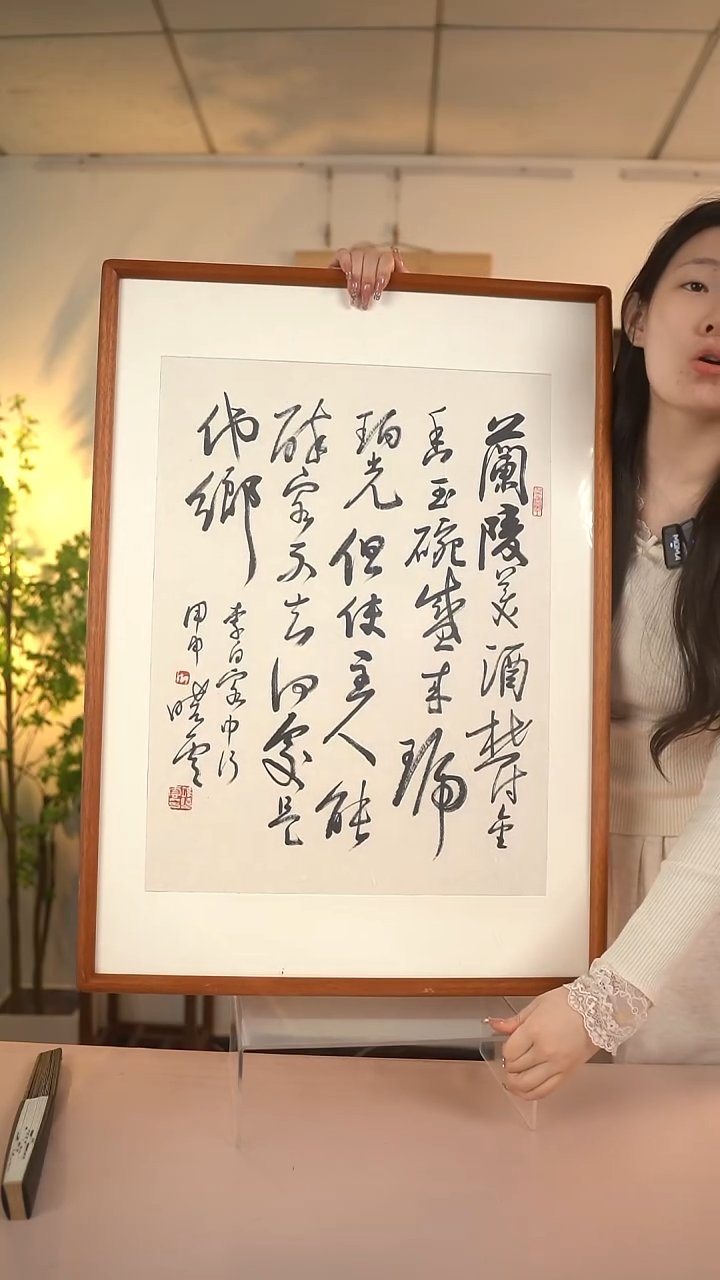 蘭陵美酒鬱金
香玉碗盛来琥
珀光但使主人能
醉客不知何處是
他鄉
李白客中行
甲申曉雲